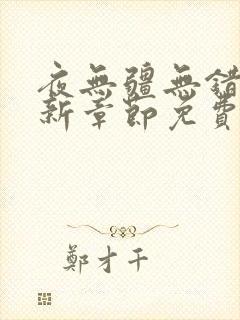 夜無疆無錯
新章節免費
鄭才千